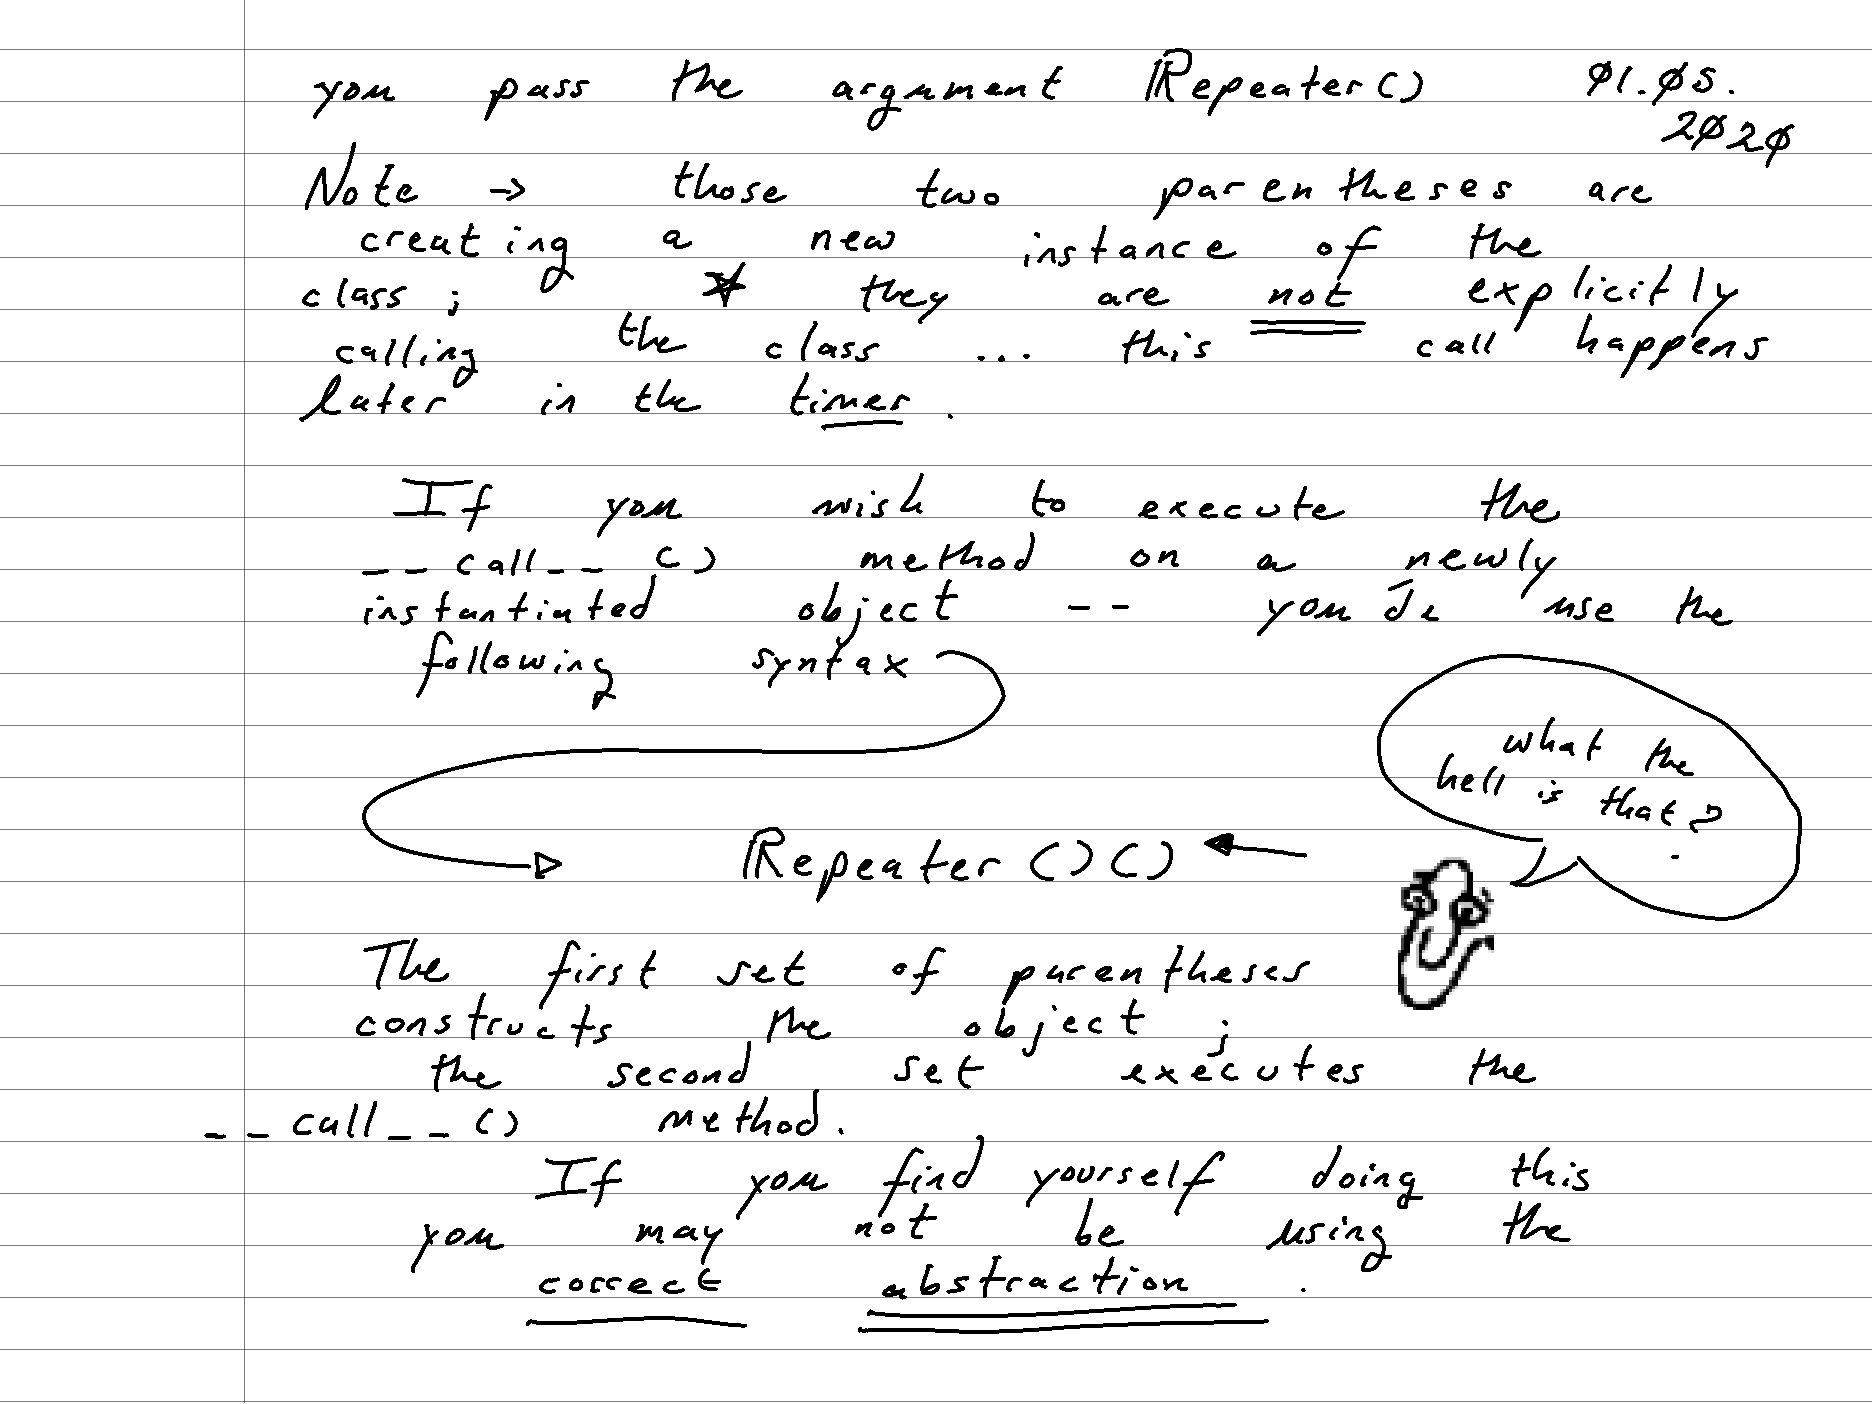 you pass the argument Repeater() 01.05.
2020
Note → those two parentheses are
creating a new instance of the
class ; ★ they are not explicitly
calling the class ... this call happens
later in the timer .
If you wish to execute the
__call__() method on a newly
instantiated object -- you'de use the
following syntax
what the
hell is that?
Repeater ()()
The first set of parentheses
constructs the object ;
the second set executes the
__call__() method.
If you find yourself doing this
you may not be using the
correct abstraction .